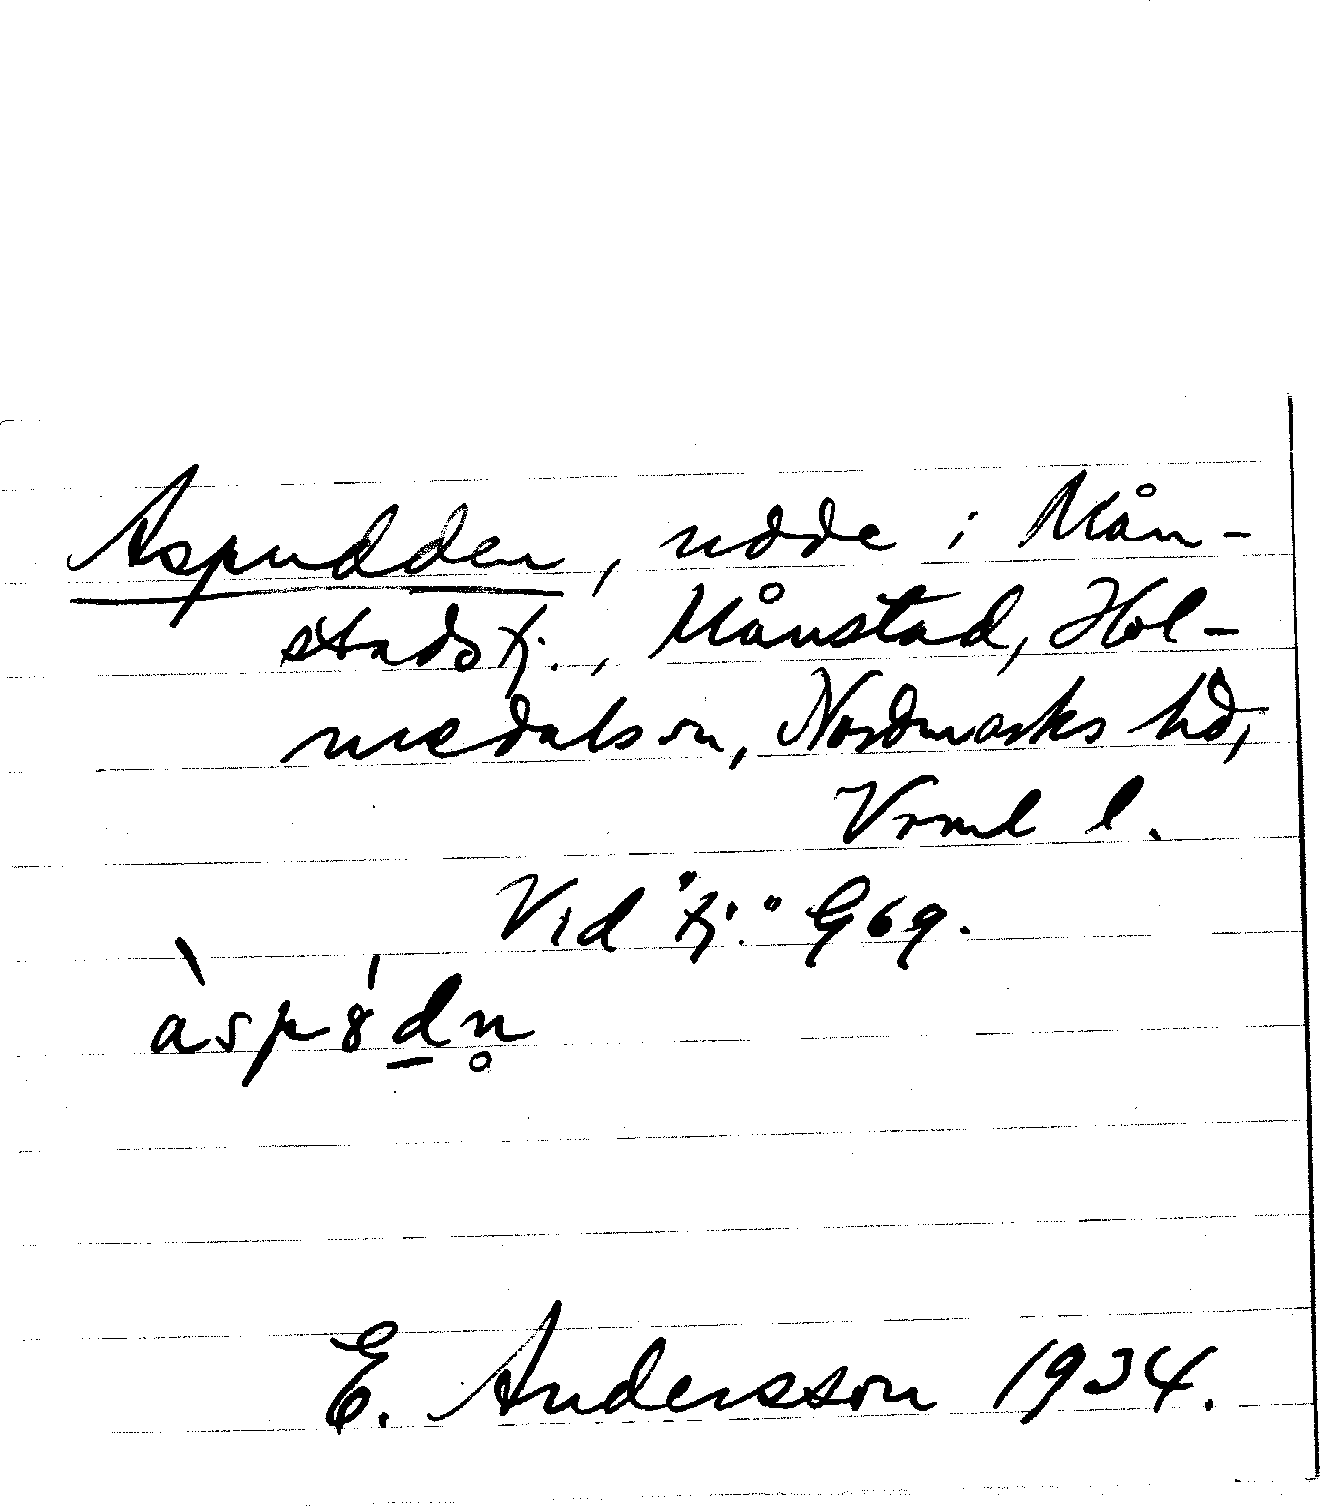 Aspudden, udde i Mån-
stadstj., Månstad, Hol-
medals sn, Nordmarks hd,
Vrml l.
Vid "tj." G69.
àspo̍ḏn̥
E. Andersson 1934.